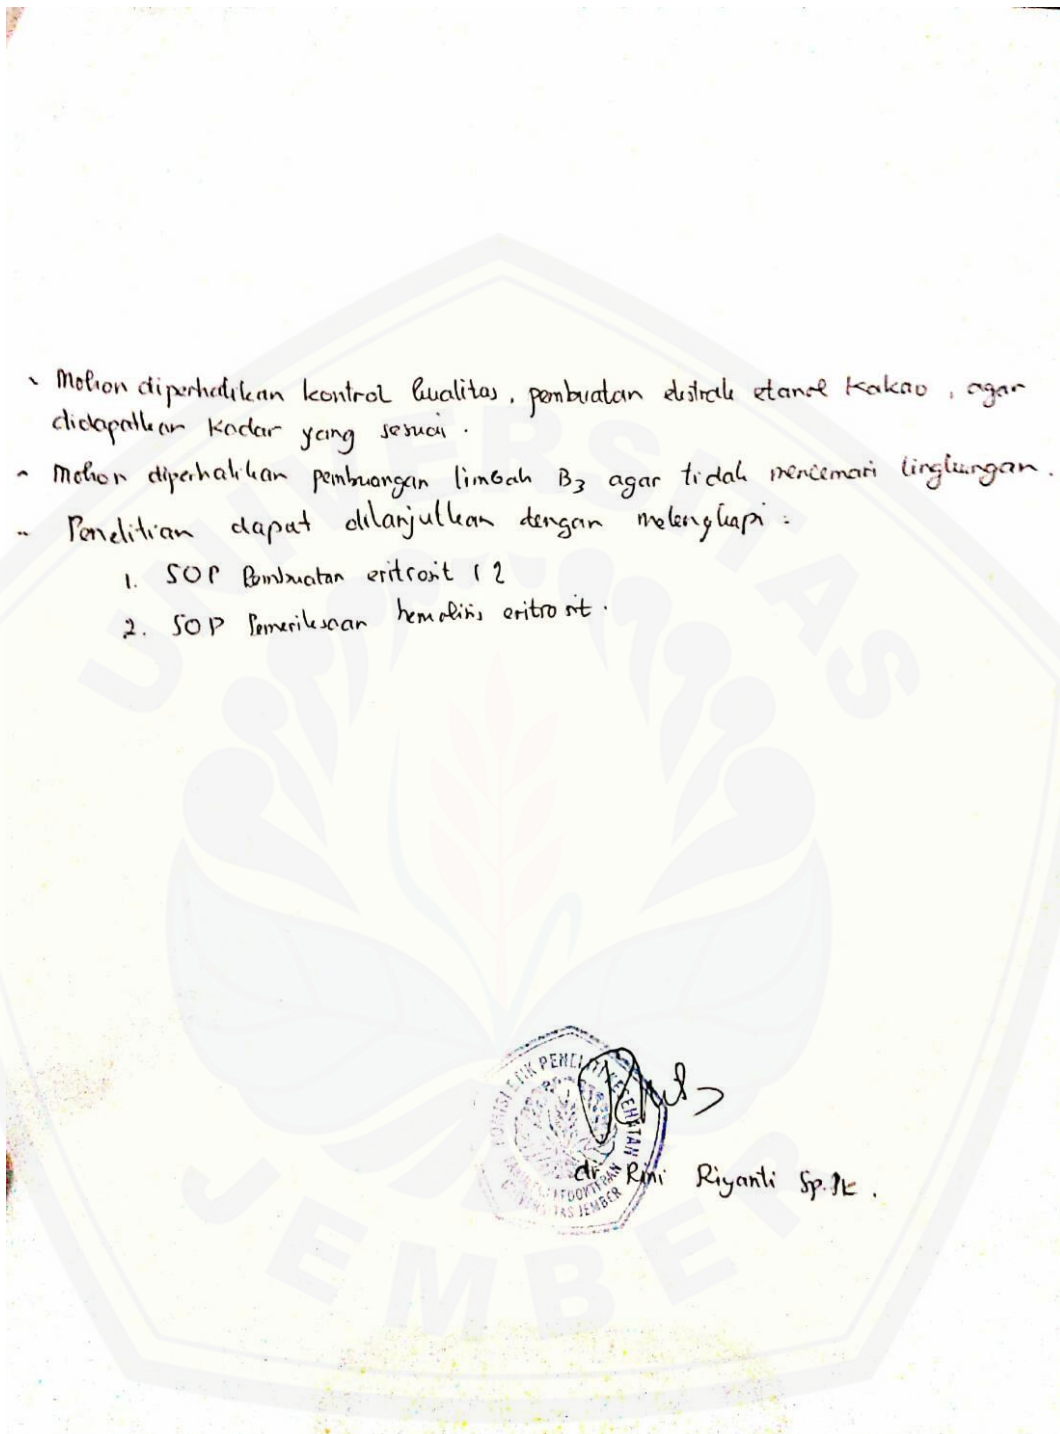 - Mohon diperhatikan kontrol kualitas, pembuatan ekstrak etanol kakao, agar
didapatkan kadar yang sesuai.
- Mohon diperhatikan pembuangan limbah B3 agar tidak mencemari lingkungan.
- Penelitian dapat dilanjutkan dengan melengkapi :
1. SOP Pembuatan eritrosit
2. SOP Pemeriksaan hemolisis eritrosit.
KOMISI ETIK PENELITI KESEHATAN
FAKULTAS KEDOKTERAN
UNIVERSITAS JEMBER
dr. Rini Riyanti Sp.PK.
UNIVERSITAS
JEMBER